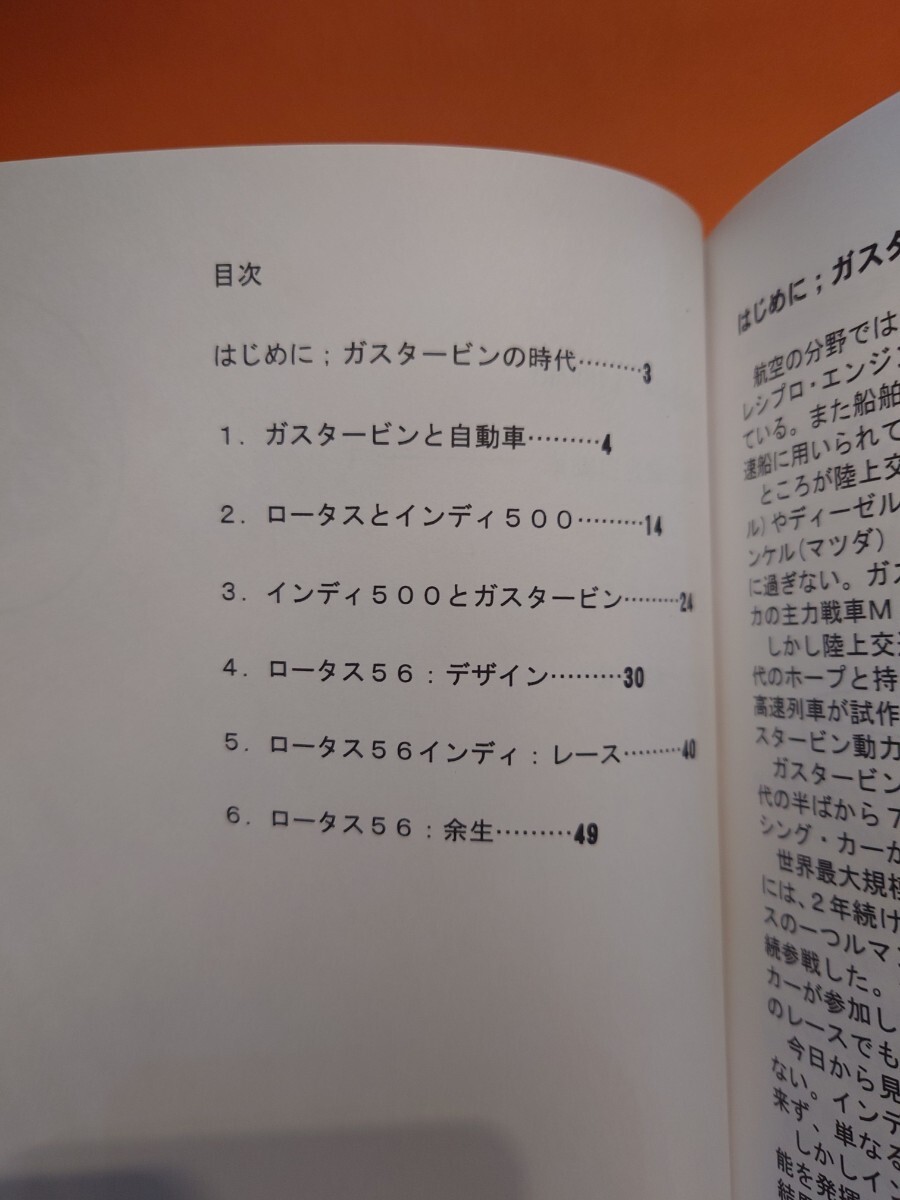 目次
はじめに；ガスタービンの時代………3
１．ガスタービンと自動車………4
２．ロータスとインディ５００………14
３．インディ５００とガスタービン………24
４．ロータス５６：デザイン………30
５．ロータス５６インディ：レース………40
６．ロータス５６：余生………49
はじめに；ガスタ
航空の分野では
レシプロ・エンジン
ている。また船舶
速船に用いられて
ところが陸上交
ル)やディーゼル
ンケル(マツダ)
に過ぎない。ガス
カの主力戦車Ｍ
しかし陸上交通
代のホープと持
高速列車が試作
スタービン動力
ガスタービン
代の半ばから７
シング・カーが
世界最大規模
には、２年続け
スの一つルマン
続参戦した。
カーが参加し
のレースでも
今日から見
ない。インデ
来ず、単なる
しかしイン
能を発揮
結果